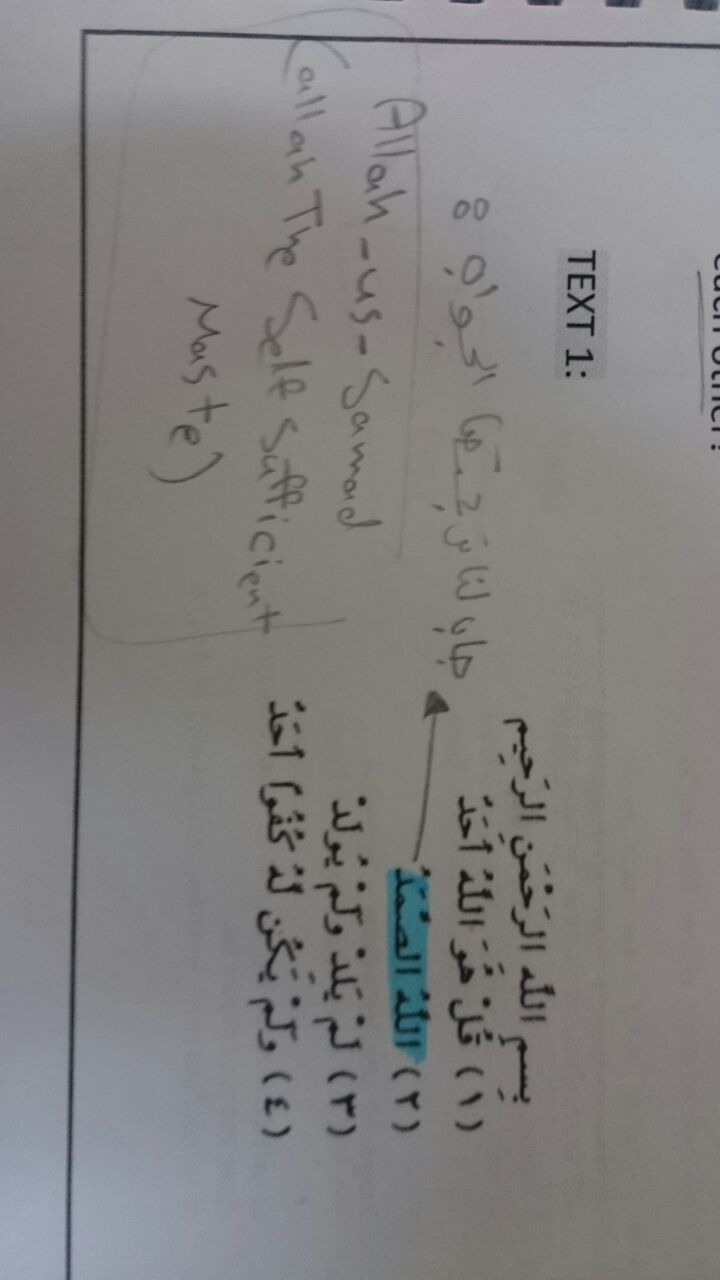 each other?
TEXT 1:
بِسمِ اللَّهِ الرَّحْمَنِ الرَّحِيم
(١) قُلْ هُوَ اللَّهُ أَحَدٌ
(٢) اللَّهُ الصَّمَدُ
(٣) لَمْ يَلِدْ وَلَمْ يُولَدْ
(٤) وَلَمْ يَكُن لَهُ كُفُوًا أَحَدٌ
الجواب :
Allah-us-Samad
(allah The Self Sufficient
Maste)